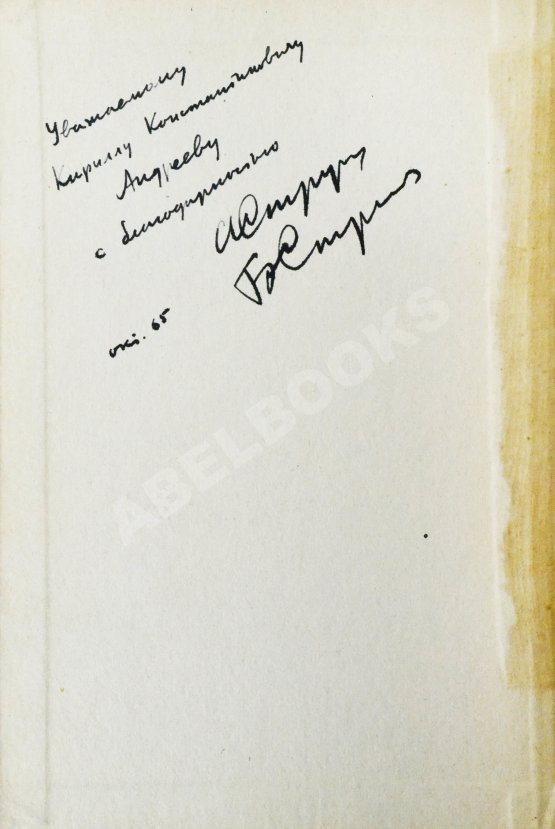 Уважаемому
Кириллу Константиновичу
Андрееву
с благодарностью
АСтруг
БСтруг
окт. 65
ABELBOOKS